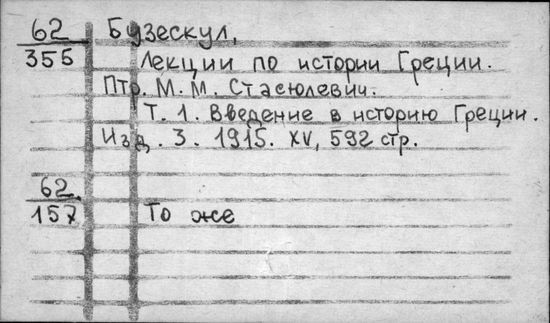 62 Бузескул,
355 Лекции по истории Греции.
Птр. М. М. Стасюлевич.
Т. 1. Введение в историю Греции.
Изд. 3. 1915. XV, 592 стр.
62
157 То же